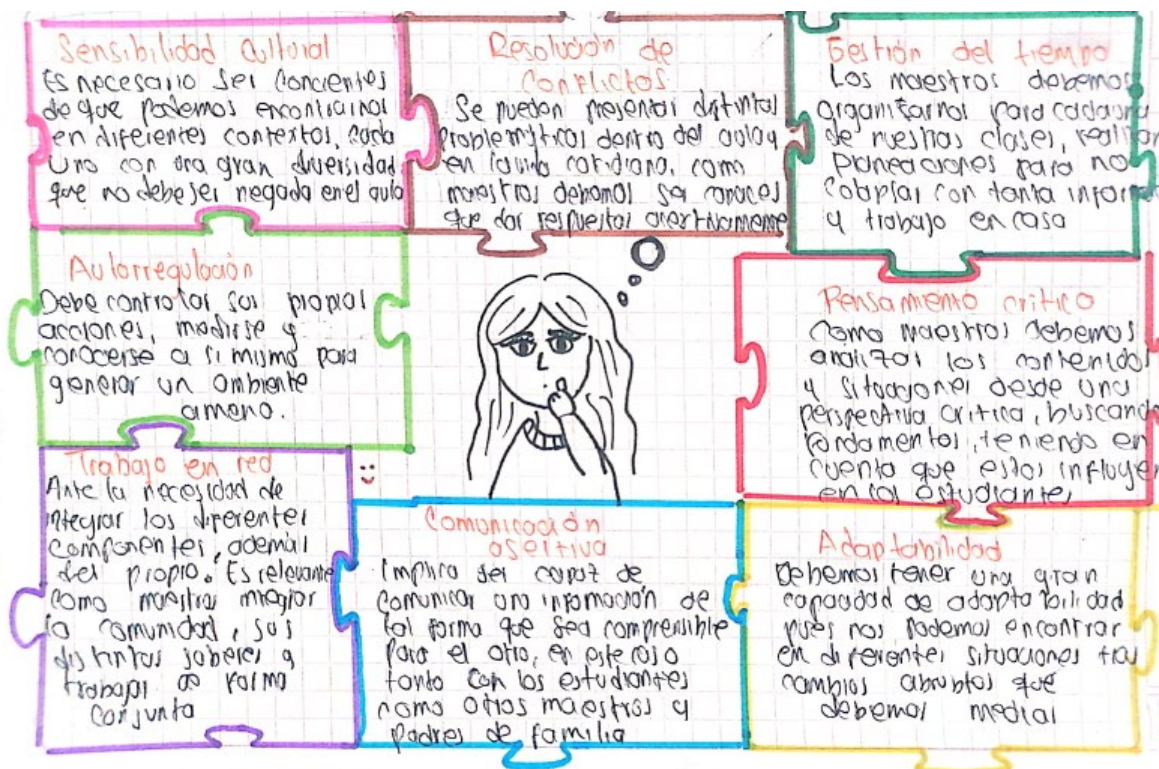 Sensibilidad Cultural
Es necesario ser concientes
de que podemos encontrarnos
en diferentes contextos, cada
uno con una gran diversidad
que no debe ser negada en el aula
Resolución de
Conflictos
Se pueden presentar distintas
problemáticas dentro del aula y
en la vida cotidiana, como
maestros debemos ser capaces
que dar respuestas asertivamente
Gestión del tiempo
Los maestros debemos
organizarnos para cada una
de nuestras clases, realizar
planeaciones para no
colapsar con tanta inform
y trabajo en casa
Autorregulación
Debe controlar sus propias
acciones, medirse y
conocerse a si mismo para
generar un ambiente
ameno.
Pensamiento critico
Como maestros debemos
analizar los contenidos
y situaciones desde una
perspectiva critica, buscando
fundamentos, teniendo en
cuenta que estos influyen
en los estudiantes
Trabajo en red
Ante la necesidad de
integrar los diferentes
componentes, además
del propio. Es relevante
como maestras integrar
la comunidad, sus
distintos saberes y
trabajar de forma
conjunta
Comunicación
asertiva
Implica ser capaz de
comunicar una información de
tal forma que sea comprensible
para el otro, en este caso
tanto con los estudiantes
como otros maestros y
padres de familia
Adaptabilidad
Debemos tener una gran
capacidad de adaptabilidad
pues nos podemos encontrar
en diferentes situaciones tras
cambios abruptos que
debemos mediar